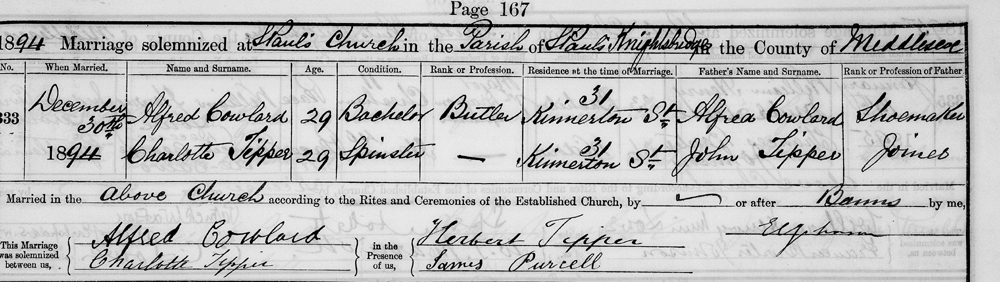 Page 167
1894 Marriage solemnized at St Paul's Church in the Parish of St Paul's Knightsbridge in the County of Middlesex
No. When Married. Name and Surname. Age. Condition. Rank or Profession. Residence at the time of Marriage. Father's Name and Surname. Rank or Profession of Father
333 December 30th 1894 Alfred Cowlard 29 Bachelor Butler 31 Kinnerton St. Alfred Cowlard Shoemaker
Charlotte Tipper 29 Spinster — 31 Kinnerton St. John Tipper Joiner
Married in the above Church according to the Rites and Ceremonies of the Established Church, by or after Banns by me,
This Marriage was solemnized between us, Alfred Cowlard in the Presence of us, Herbert Tipper
Charlotte Tipper James Purcell